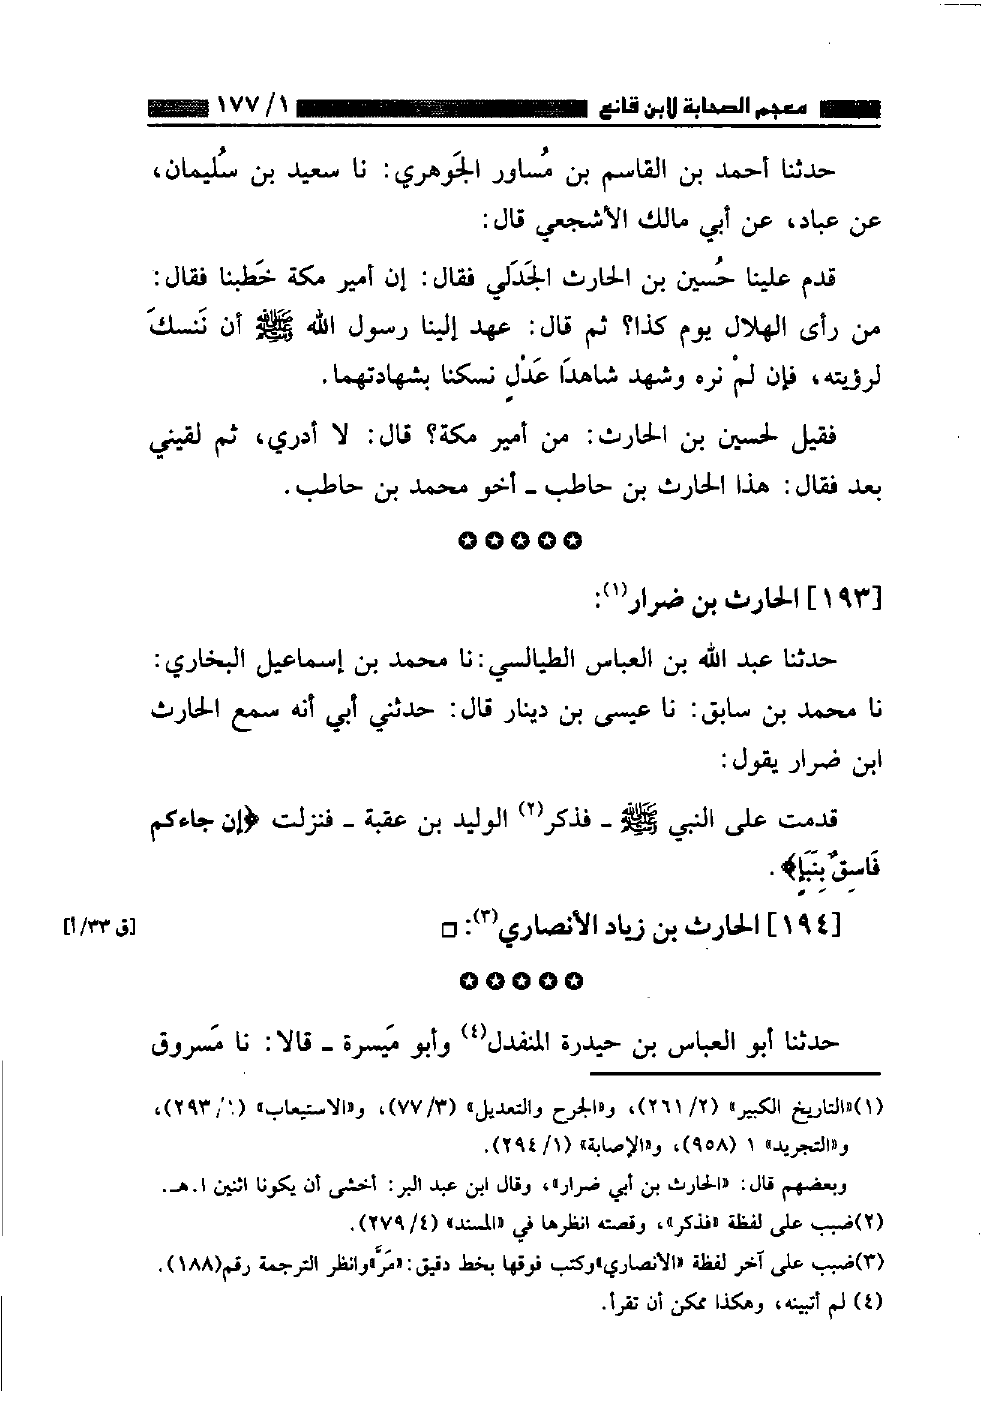 معجم الصحابة لابن قانع ١/ ١٧٧
حدثنا أحمد بن القاسم بن مُساور الجَوهري: نا سعيد بن سُليمان،
عن عباد، عن أبي مالك الأشجعي قال:
قدم علينا حُسين بن الحارث الجَدَلي فقال: إن أمير مكة خَطبنا فقال:
من رأى الهلال يوم كذا؟ ثم قال: عهد إلينا رسول الله ﷺ أن نَنسكَ
لرؤيته، فإن لمْ نره وشهد شاهدَا عَدْلٍ نسكنا بشهادتهما.
فقيل لحسين بن الحارث: من أمير مكة؟ قال: لا أدري، ثم لقيني
بعد فقال: هذا الحارث بن حاطب ـ أخو محمد بن حاطب.
✪✪✪✪✪
[١٩٣] الحارث بن ضرار(١):
حدثنا عبد الله بن العباس الطيالسي: نا محمد بن إسماعيل البخاري:
نا محمد بن سابق: نا عيسى بن دينار قال: حدثني أبي أنه سمع الحارث
ابن ضرار يقول:
قدمت على النبي ﷺ ـ فذكر(٢) الوليد بن عقبة ـ فنزلت ﴿إن جاءكم
فَاسِقٌ بِنَبَإٍ﴾.
[١٩٤] الحارث بن زياد الأنصاري(٣): □ [ق ٣٣/أ]
✪✪✪✪✪
حدثنا أبو العباس بن حيدرة المنفدل(٤) وأبو مَيسرة ـ قالا: نا مَسروق
(١) «التاريخ الكبير» (٢/ ٢٦١)، و«الجرح والتعديل» (٣/ ٧٧)، و«الاستيعاب» (١/ ٢٩٣)،
و«التجريد» ١ (٩٥٨)، و«الإصابة» (١/ ٢٩٤).
وبعضهم قال: «الحارث بن أبي ضرار»، وقال ابن عبد البر: أخشى أن يكونا اثنين ا.هـ.
(٢) ضبب على لفظة «فذكر»، وقصته انظرها في «المسند» (٤/ ٢٧٩).
(٣) ضبب على آخر لفظة «الأنصاري» وكتب فوقها بخط دقيق: «مَرَّ» وانظر الترجمة رقم (١٨٨).
(٤) لم أتبينه، وهكذا ممكن أن تقرأ.